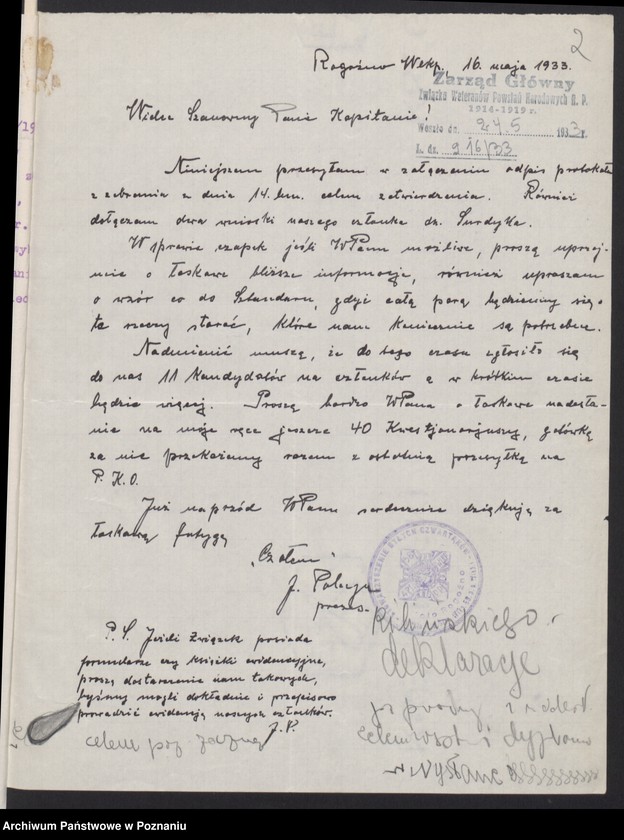 2
Rogoźno Wlkp., 16. maja 1933.
Zarząd Główny
Związku Weteranów Powstań Narodowych R. P.
1914-1919 r.
Weszło dn. 24.5 1933 r.
L. dz. 916/33
Wielce Szanowny Panie Kapitanie!
Niniejszem przesyłam w załączeniu odpis protokołu
z zebrania z dnia 14. bm. celem zatwierdzenia. Również
dołączam dwa wnioski naszego członka dh. Surdyka.
W sprawie czapek jeśli WPanu możliwe, proszę uprzej-
mie o łaskawe bliższe informacje, również upraszam
o wzór co do Sztandaru, gdyż całą parą będziemy się o
te rzeczy starać, które nam koniecznie są potrzebne.
Nadmienić muszę, że do tego czasu zgłosiło się
do nas 11 kandydatów na członków a w krótkim czasie
będzie więcej. Proszę bardzo WPana o łaskawe nadesła-
nie na moje ręce jeszcze 40 Kwestjonarjuszy, gotówkę
za nie przekażemy razem z ostatnią przesyłką na
P. K. O.
Już naprzód WPanu serdecznie dziękuję za
łaskawą fatygę
"Czołem"
J.
prezes.
P. S. Jeżeli Związek posiada
formularze czy książki ewidencyjne,
proszę dostarczenie nam takowych,
byśmy mogli dokładnie i przepisowo
prowadzić ewidencję naszych członków.
J. P.
deklaracje
celem
i
wysłane
Archiwum Państwowe w Poznaniu